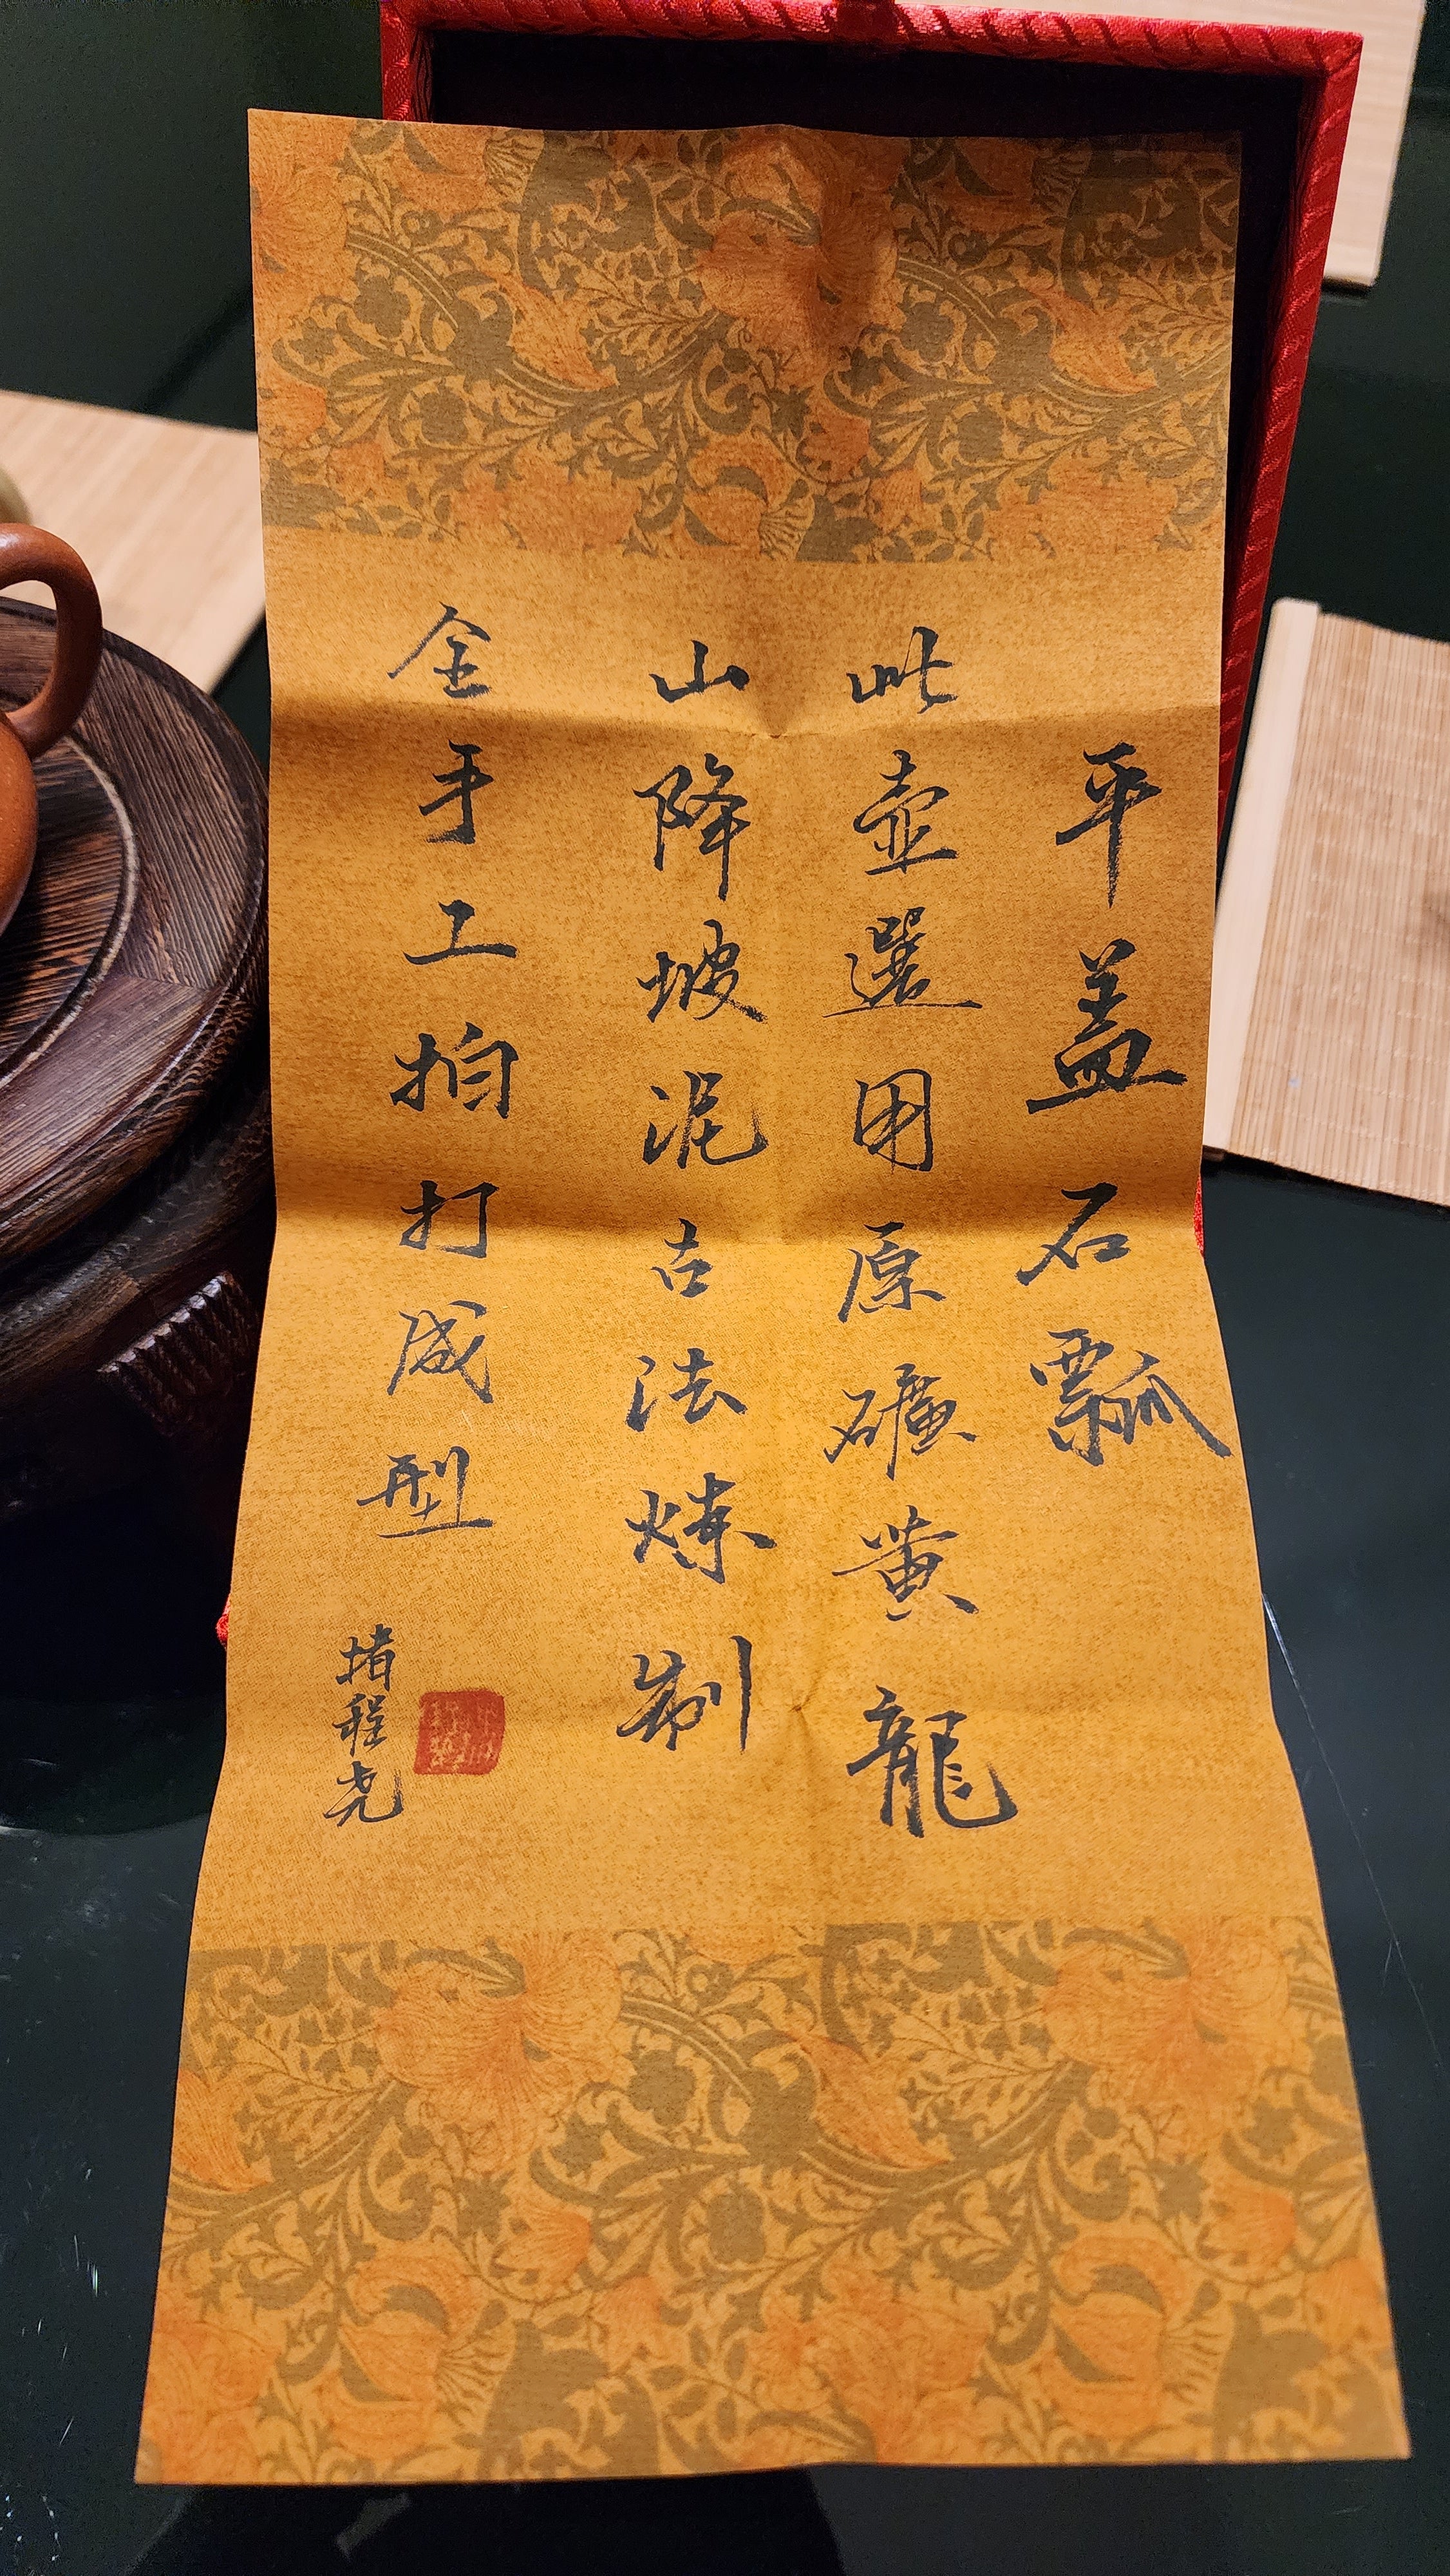 平盖石瓢
此壶選用原礦黄龍
山降坡泥古法炼制
全手工拍打成型
堵程尧